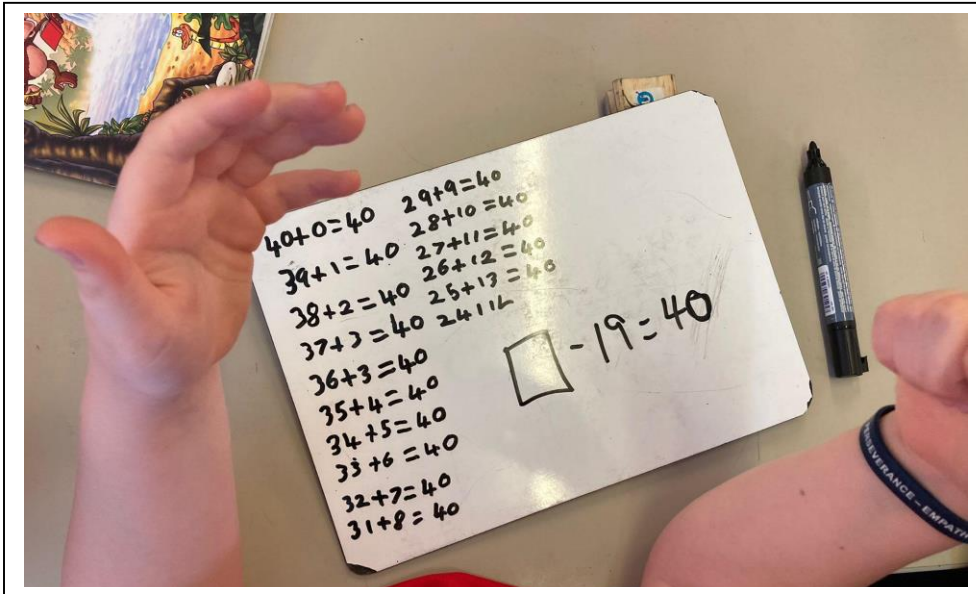 40+0=40
39+1=40
38+2=40
37+3=40
36+3=40
35+4=40
34+5=40
33+6=40
32+7=40
31+8=40
29+9=40
28+10=40
27+11=40
26+12=40
25+13=40
□-19=40
PERSEVERANCE – EMPATH